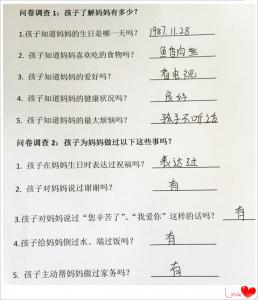 问卷调查1：孩子了解妈妈有多少？
1.孩子知道妈妈的生日是哪一天吗？ 1987.11.28
2.孩子知道妈妈喜欢吃的食物吗？ 鱼肉虾
3.孩子知道妈妈的爱好吗？ 看电视
4.孩子知道妈妈的健康状况吗？ 良好
5.孩子知道妈妈的最大烦恼吗？ 孩子不听话
问卷调查2：孩子为妈妈做过以下这些事吗？
1. 孩子在妈妈生日时表达过祝福吗？ 表达过
2. 孩子对妈妈说过谢谢吗？ 有
3.孩子对妈妈说过“您辛苦了”、“我爱你”这样的话吗？ 有
4.孩子给妈妈倒过水、端过饭吗？ 有
5. 孩子主动帮妈妈做过家务吗？ 有
Love